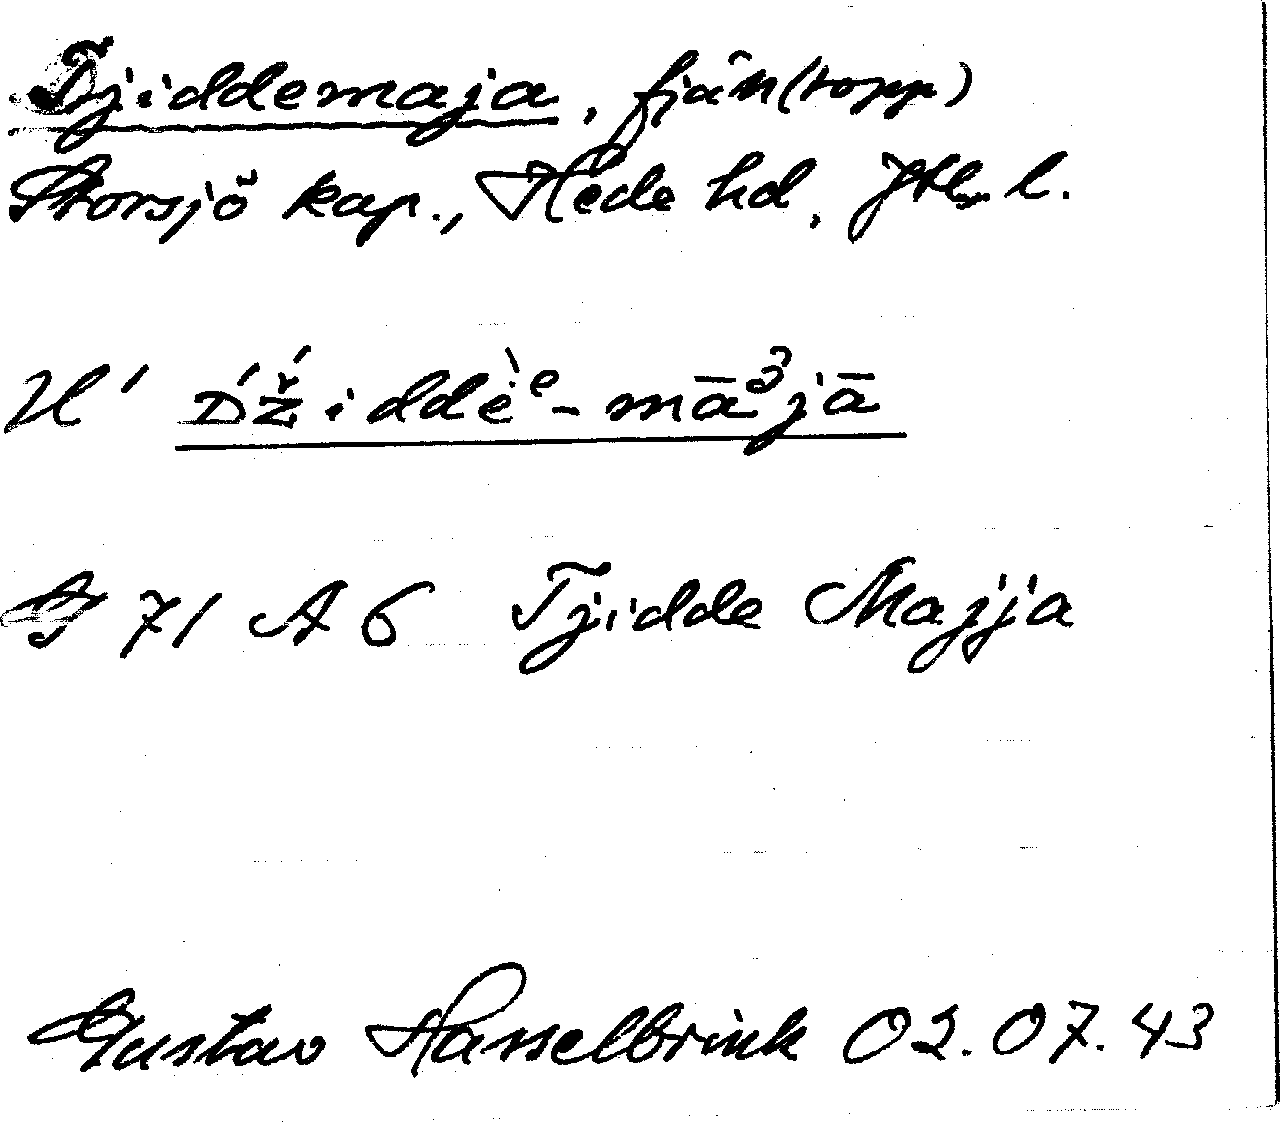 Tjiddemaja, fjäll(topp)
Storsjö kap., Hede hd, Jtl. l.
U' D́Ž́iddèᵉ-māᵌjā
G 71 A 6 Tjidde Majja
Gustav Hasselbrink 02.07.43